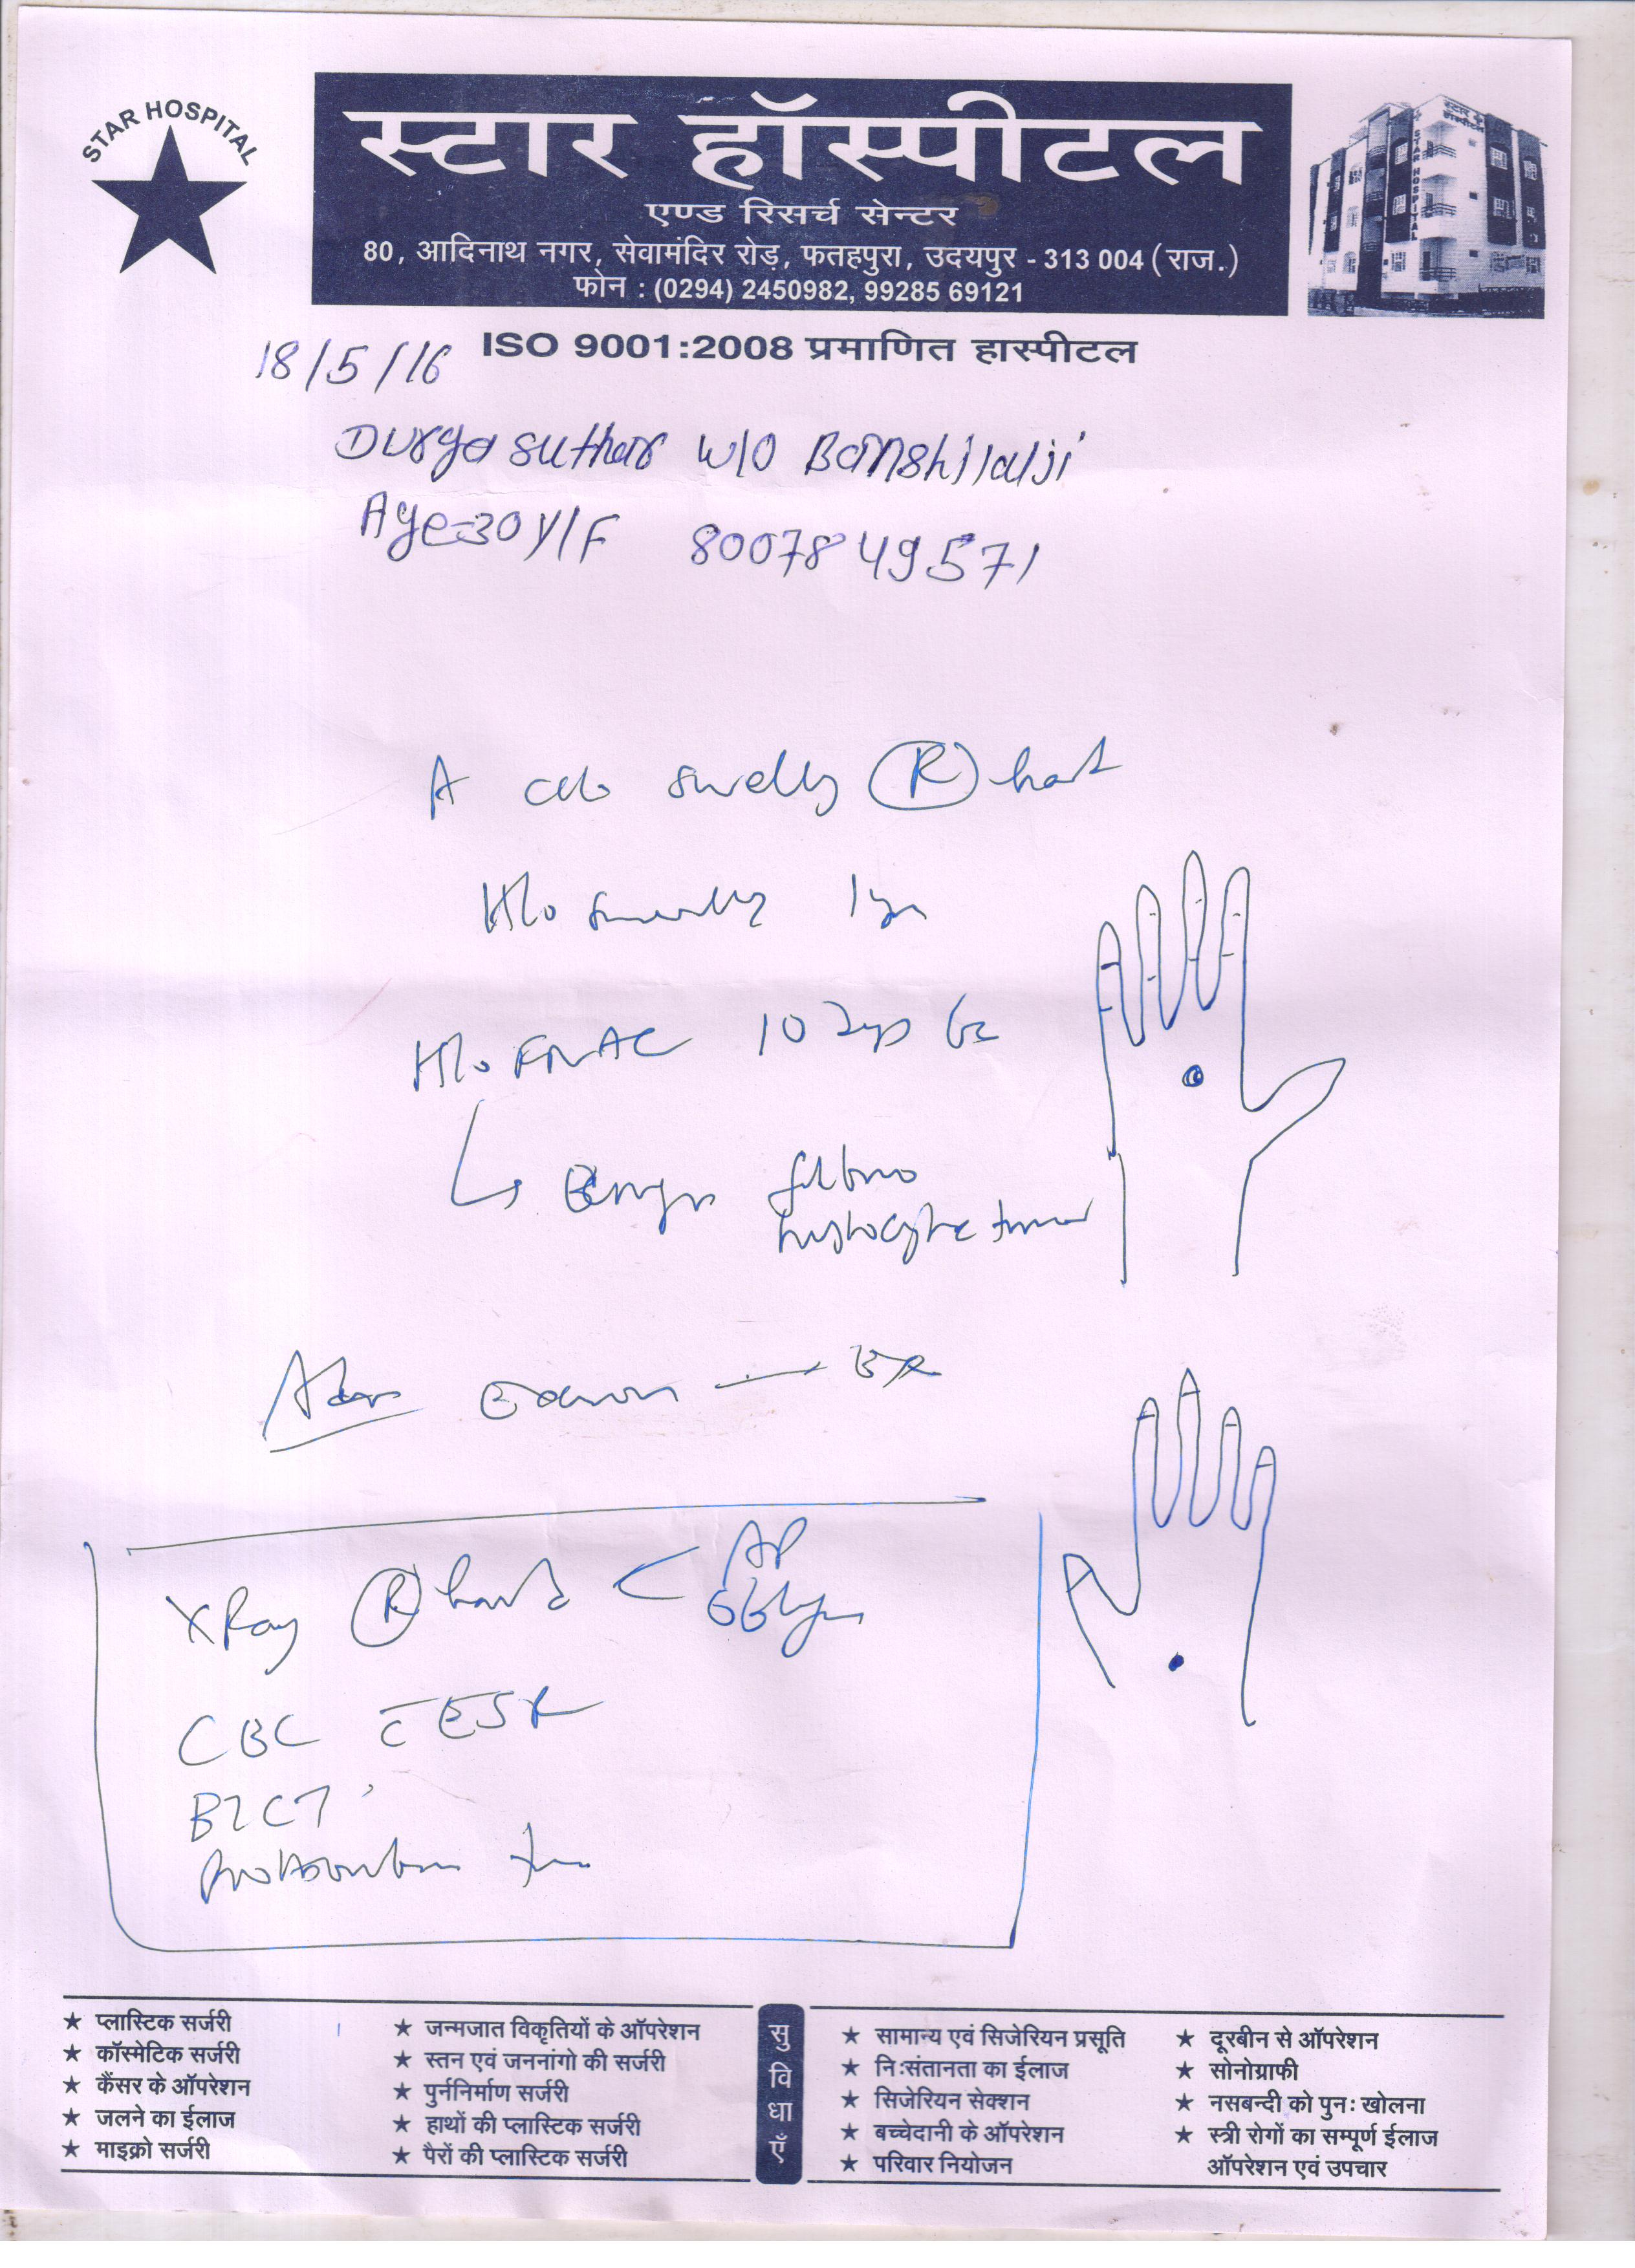 STAR HOSPITAL
स्टार हॉस्पीटल
एण्ड रिसर्च सेन्टर
80, आदिनाथ नगर, सेवामंदिर रोड़, फतहपुरा, उदयपुर - 313 004 (राज.)
फोन : (0294) 2450982, 99285 69121
ISO 9001:2008 प्रमाणित हास्पीटल
18/5/16
Durga suthar w/o Banshilalji
Age=30Y/F 8007849571
A c/o swelling (R) hand
H/o swelling 1yr
H/o FNAC 10 days
Benign fibro
histocytic tumor
Adv
X Ray (R) hand < AP
oblique
CBC c̄ ESR
BTCT
Prothrombin time
★ प्लास्टिक सर्जरी
★ कॉस्मेटिक सर्जरी
★ कैंसर के ऑपरेशन
★ जलने का ईलाज
★ माइक्रो सर्जरी
★ जन्मजात विकृतियों के ऑपरेशन
★ स्तन एवं जननांगो की सर्जरी
★ पुर्ननिर्माण सर्जरी
★ हाथों की प्लास्टिक सर्जरी
★ पैरों की प्लास्टिक सर्जरी
सुविधाएँ
★ सामान्य एवं सिजेरियन प्रसूति
★ निःसंतानता का ईलाज
★ सिजेरियन सेक्शन
★ बच्चेदानी के ऑपरेशन
★ परिवार नियोजन
★ दूरबीन से ऑपरेशन
★ सोनोग्राफी
★ नसबन्दी को पुनः खोलना
★ स्त्री रोगों का सम्पूर्ण ईलाज
ऑपरेशन एवं उपचार